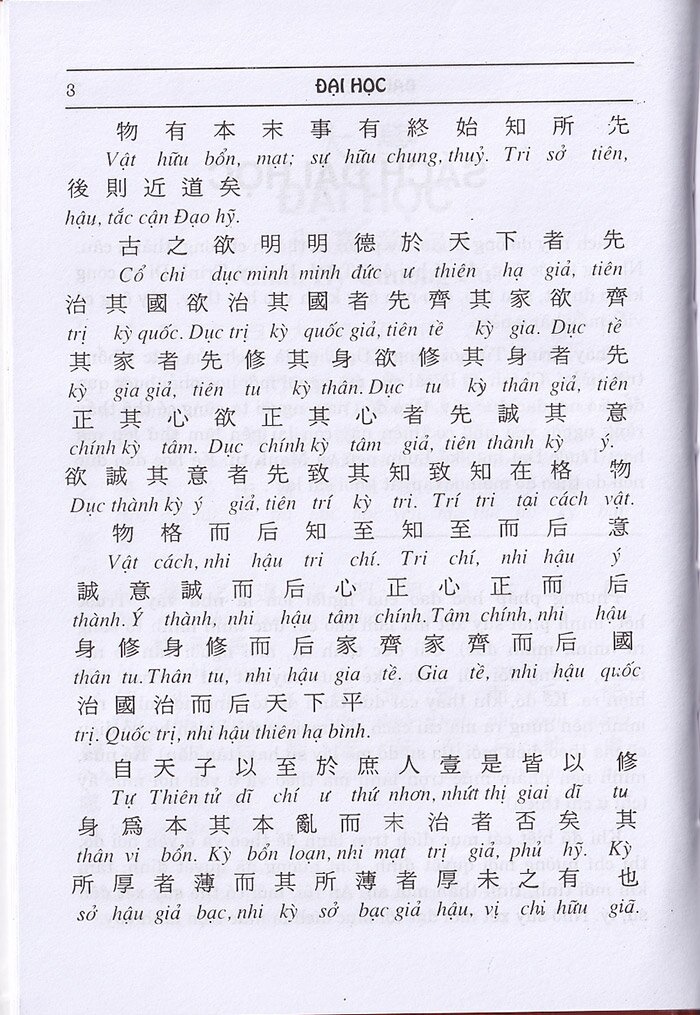 3 ĐẠI HỌC
物有本末事有終始知所先
Vật hữu bổn, mạt; sự hữu chung, thuỷ. Tri sở tiên,
後則近道矣
hậu, tắc cận Đạo hỹ.
古之欲明明德於天下者先
Cổ chi dục minh minh đức ư thiên hạ giả, tiên
治其國欲治其國者先齊其家欲齊
trị kỳ quốc. Dục trị kỳ quốc giả, tiên tề kỳ gia. Dục tề
其家者先修其身欲修其身者先
kỳ gia giả, tiên tu kỳ thân. Dục tu kỳ thân giả, tiên
正其心欲正其心者先誠其意
chính kỳ tâm. Dục chính kỳ tâm giả, tiên thành kỳ ý.
欲誠其意者先致其知致知在格物
Dục thành kỳ ý giả, tiên trí kỳ tri. Trí tri tại cách vật.
物格而后知至知至而后意
Vật cách, nhi hậu tri chí. Tri chí, nhi hậu ý
誠意誠而后心正心正而后
thành. Ý thành, nhi hậu tâm chính. Tâm chính, nhi hậu
身修身修而后家齊家齊而后國
thân tu. Thân tu, nhi hậu gia tề. Gia tề, nhi hậu quốc
治國治而后天下平
trị. Quốc trị, nhi hậu thiên hạ bình.
自天子以至於庶人壹是皆以修
Tự Thiên tử dĩ chí ư thứ nhơn, nhứt thị giai dĩ tu
身爲本其本亂而末治者否矣其
thân vi bổn. Kỳ bổn loạn, nhi mạt trị giả, phủ hỹ. Kỳ
所厚者薄而其所薄者厚未之有也
sở hậu giả bạc, nhi kỳ sở bạc giả hậu, vị chi hữu giã.